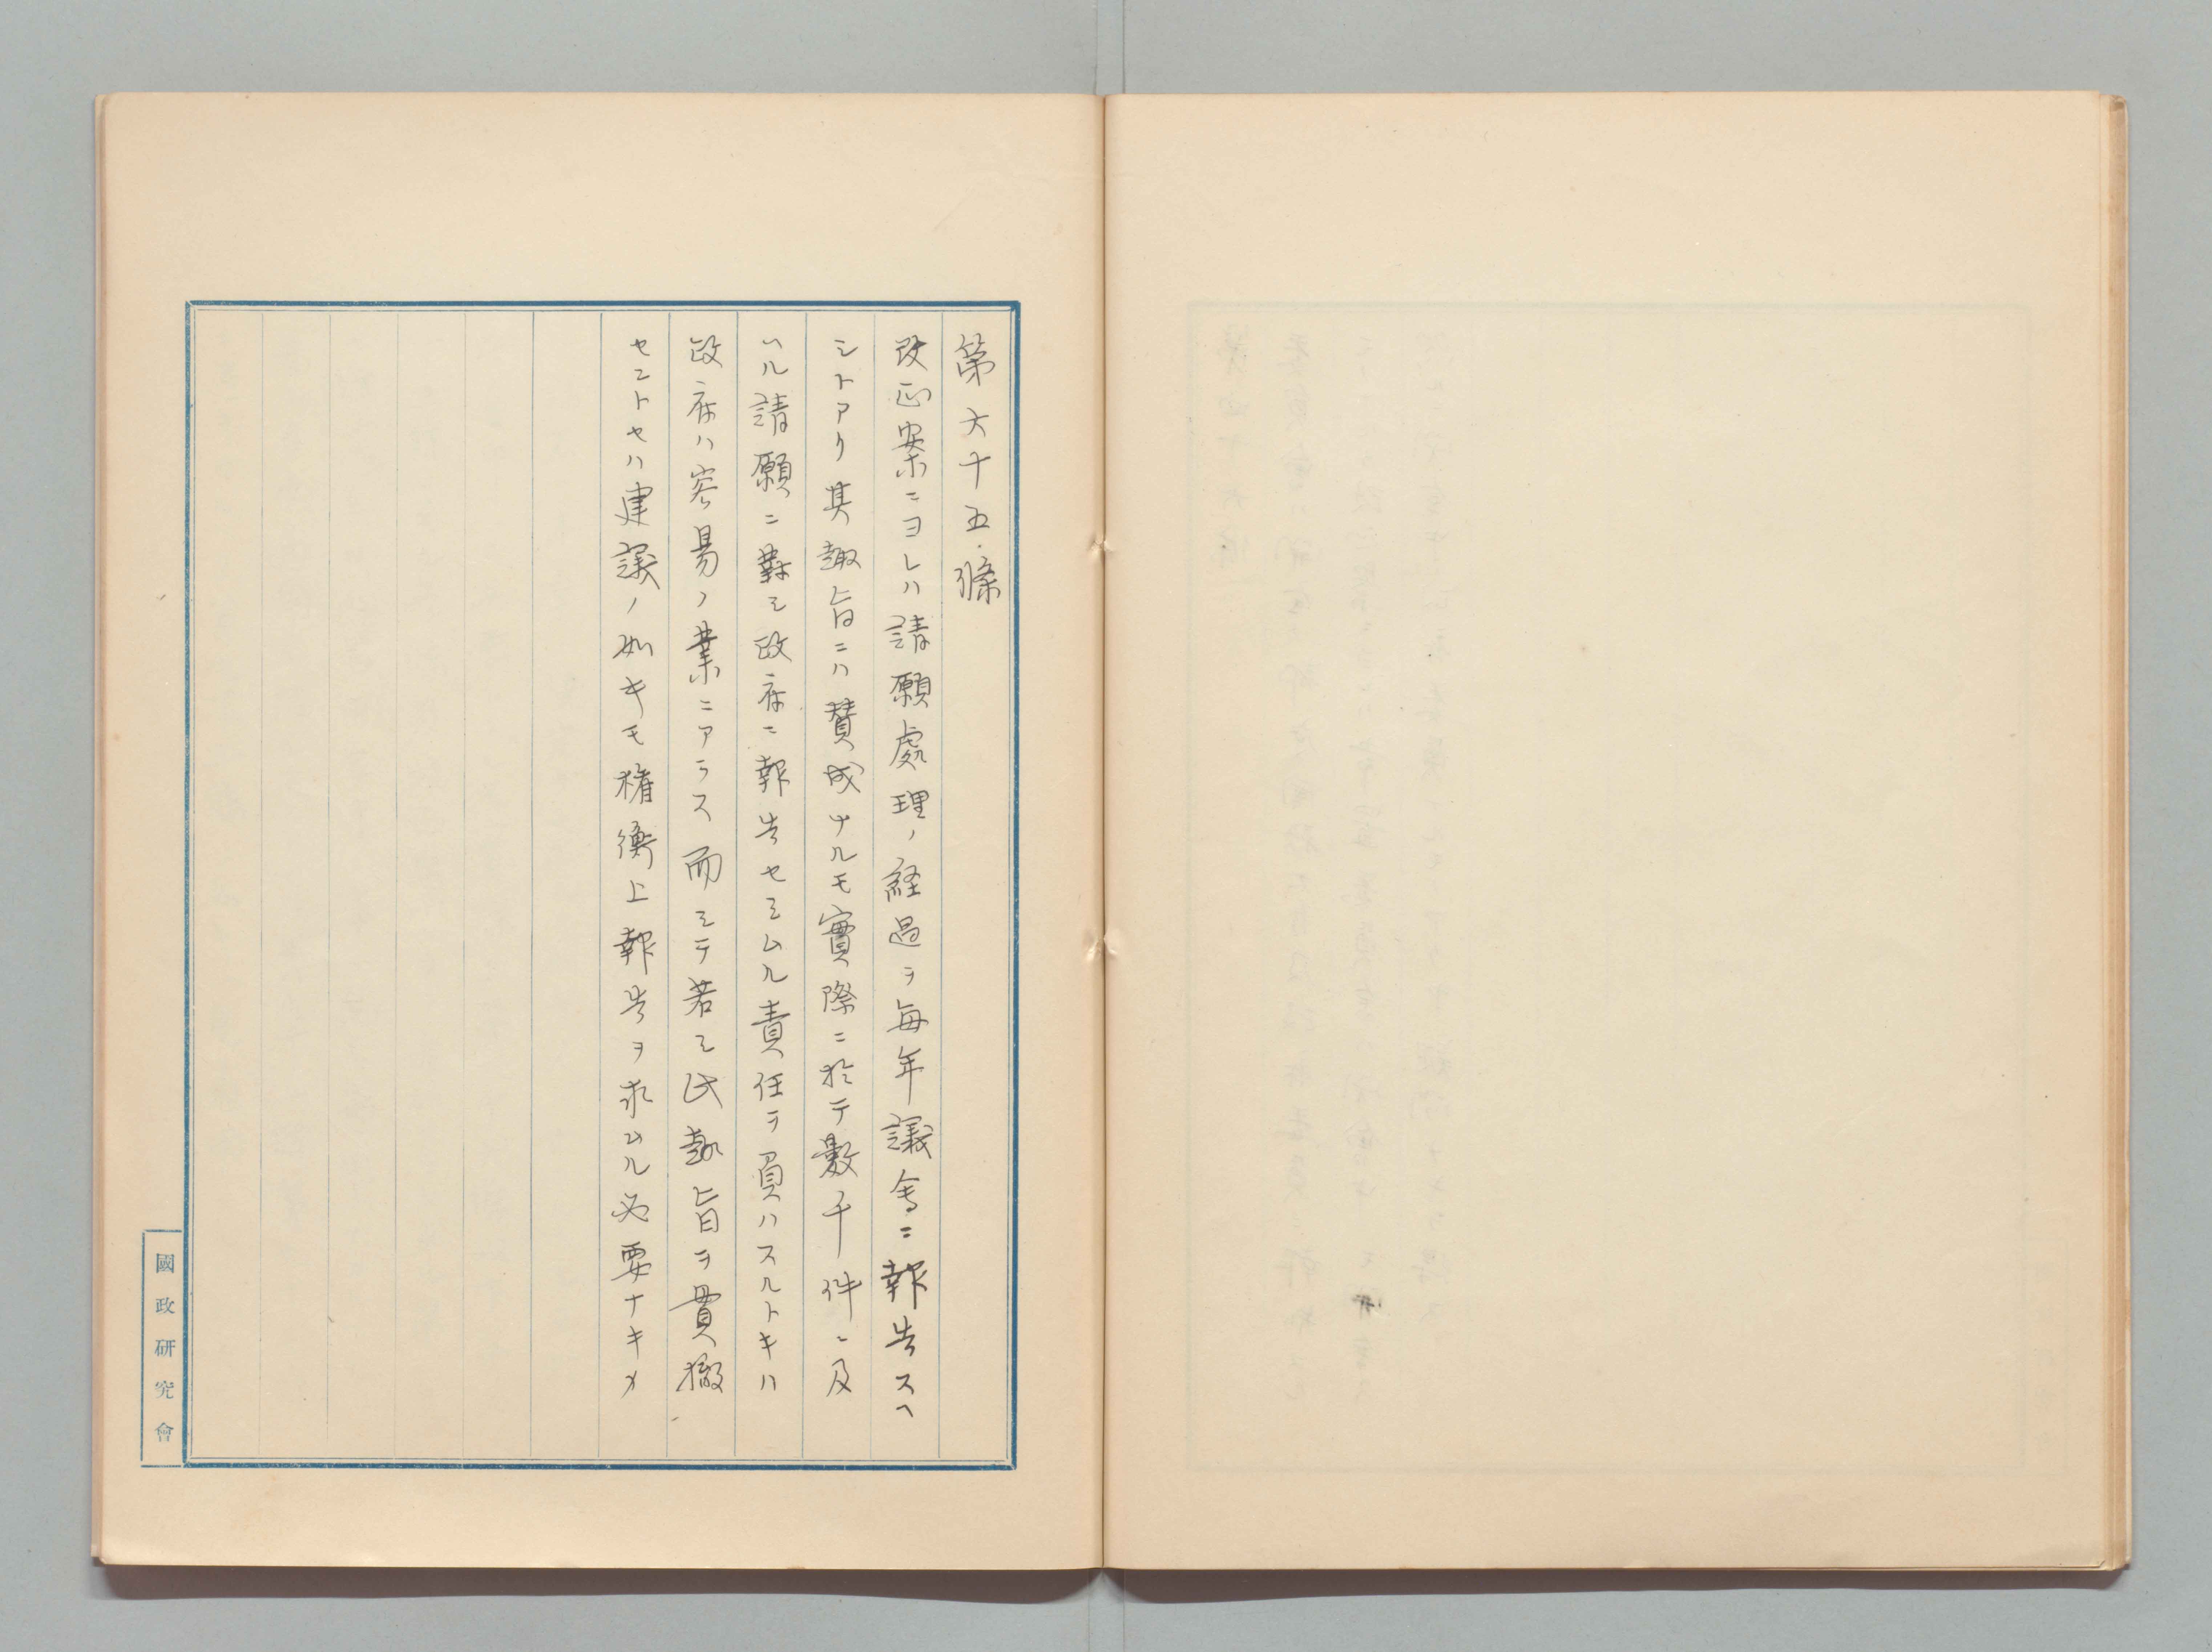 第六十五條
改正案ニヨレハ請願處理ノ経過ヲ毎年議會ニ報告スヘ
シトアリ其趣旨ニハ賛成ナルモ實際ニ於テ數千件ニ及
ハル請願ニ對シ政府ニ報告セシムル責任ヲ負ハスルトキハ
政府ハ容易ノ業ニアラス而シテ若シ此趣旨ヲ貫徹
セントセハ建議ノ如キモ権衡上報告ヲ求ムル必要ナキメ
國政研究會